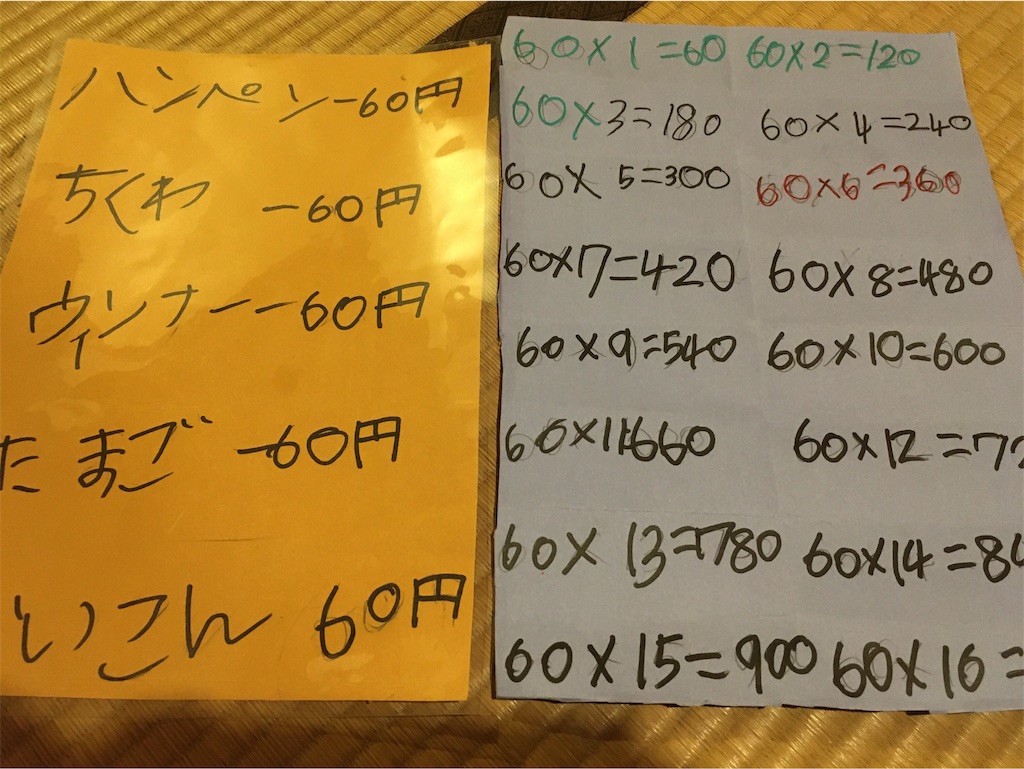 ハンペンー60円
ちくわ ー60円
ウィンナーー60円
たまご ー60円
いこん 60円
60×1=60 60×2=120
60×3=180 60×4=240
60× 5=300 60×6=360
60×7=420 60×8=480
60×9=540 60×10=600
60×11=660 60×12=72
60×13=780 60×14=84
60×15=900 60×16=